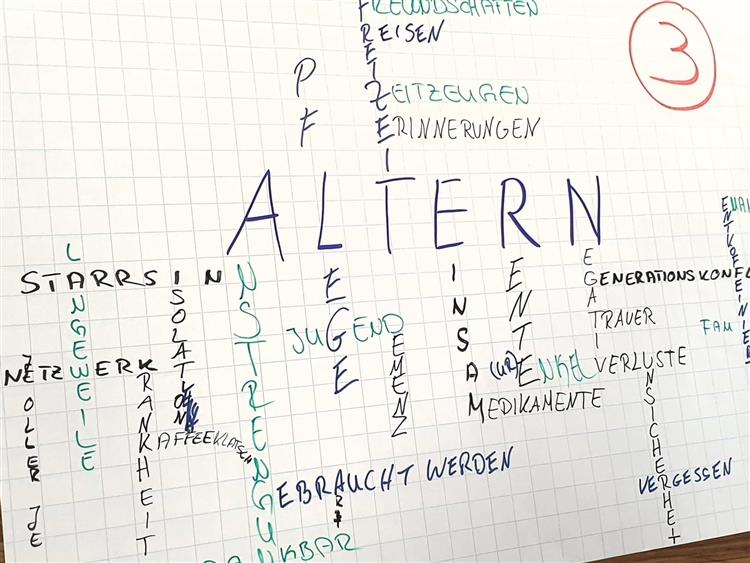 FREUNDSCHAFTEN
REISEN
FREIZEIT
3
ZEITZEUGEN
ERINNERUNGEN
PFLEGE
ALTERN
LANGEWEILE
STARRSIN
ISOLATION
ANSTRENGUNG
EINSAM
RENTE
NEGATIV
GENERATIONSKONFL
JUGEND
DEMENZ
TRAUER
FAM
NETZWERK
JE OLLER JE
KRANKHEIT
(UR)ENKEL
VERLUSTE
MEDIKAMENTE
KAFFEEKLATSCH
GEBRAUCHT WERDEN
VERGESSEN
DANKBAR